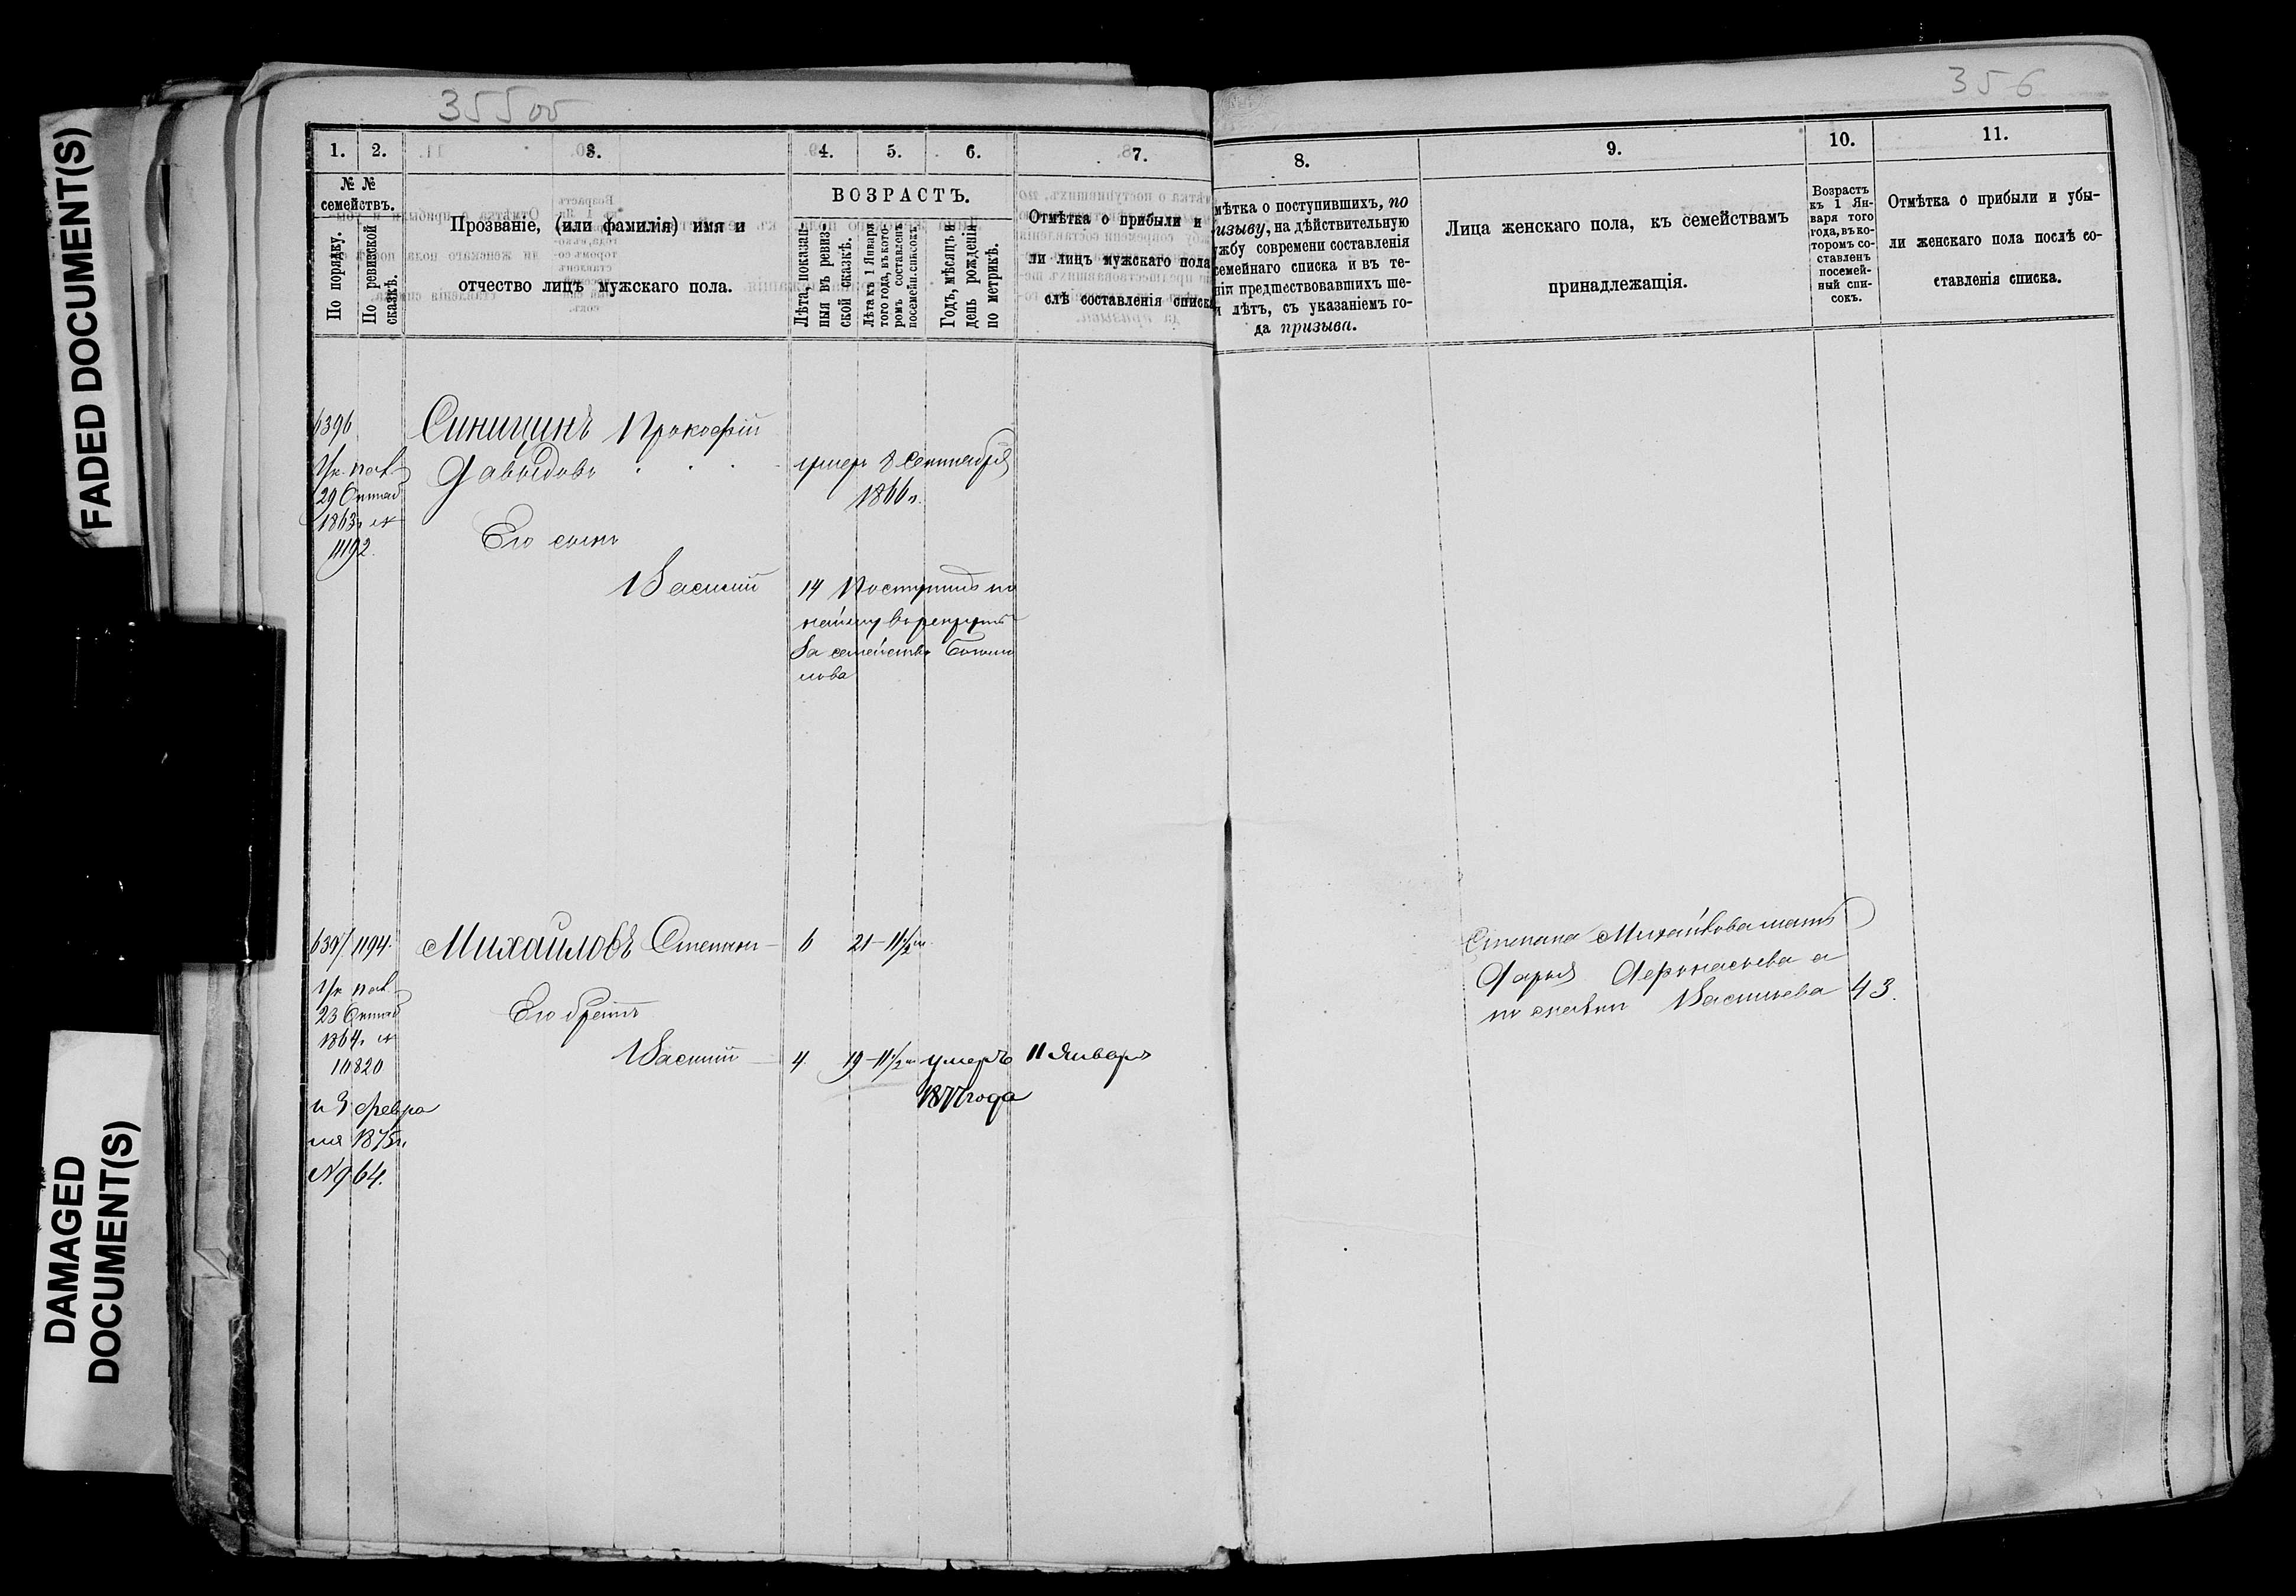 FADED DOCUMENT(S)
DAMAGED
DOCUMENT(S)
355 об
1. 2. 3. 4. 5. 6. 7.
№ №
семействъ.
По порядку.
По ревизской
сказкѣ.
Прозваніе, (или фамилія) имя и
отчество лицъ мужскаго пола.
ВОЗРАСТЪ.
Лѣта, показан-
ныя въ ревиз-
ской сказкѣ.
Лѣта къ 1 Января
того года, въ кото-
ромъ составленъ
посемейн. списокъ.
Годъ, мѣсяцъ и
день рожденія
по метрикѣ.
Отмѣтка о прибыли и
ли лицъ мужскаго пола
слѣ составленія списка
6396
Синицинъ Прокофій
Ук. пал.
Давыдовъ
умеръ 8 Сентября
29 Октяб
1866 г.
1863 г. №
11192.
Его сынъ
Василій
14 Поступилъ по
найму въ рекруты
За семейство
6397 1194.
Михайловъ Степанъ
6 21-11 1/2 м.
Ук пал.
23 Октяб
Его братъ
1864 г. №
10820
Василій
4. 19-11 1/2 м умеръ 11 Января
1877 года
и 3 Февра
ля 1875 г.
№ 964.
356
8. 9. 10. 11.
мѣтка о поступившихъ, по
изыву, на дѣйствительную
жбу современи составленія
семейнаго списка и въ те-
ніи предшествовавшихъ ше-
и лѣтъ, съ указаніемъ го-
да призыва.
Лица женскаго пола, къ семействамъ
принадлежащія.
Возрастъ
къ 1 Ян-
варя того
года, въ ко-
торомъ со-
ставленъ
посемей-
ный спи-
сокъ.
Отмѣтка о прибыли и убы-
ли женскаго пола послѣ со-
ставленія списка.
Степана Михайлова мать
Дарья Афонасьева а
по сказки Васильева 43.